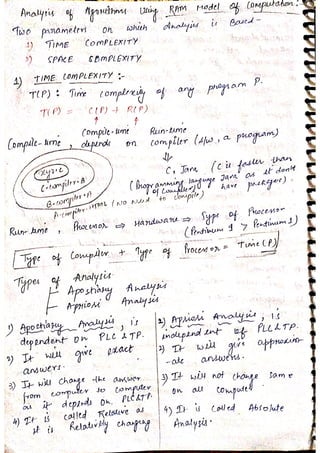 Analysis of Algorithms Using RAM Model of Computation:
Two parameters on which Analysis is Based-
1) TIME COMPLEXITY
2) SPACE COMPLEXITY
1) TIME COMPLEXITY :-
T(P) : Time complexity of any program P.
T(P) = C(P) + R(P)
Compile-time Run-time
Compile-time, depends on compiler (s/w, a program)
C, Java (C is faster than
(Programming language Java as it don't
of Compiler) have packages).
xyz.c
C-compiler-B
B-compiler-A
(No need to compile)
Run-time, Processor ⇒ Hardware ⇒ Type of Processor
(Pentium 4 > Pentium 1)
Type of Compiler + Type of Processor = Time(P)
Types of Analysis
Apostiary Analysis
Apriori Analysis
1) Apostiary Analysis, is
dependent on PLC & TP.
2) It will give exact
answers.
3) It will change the answer
from computer to computer
as it depends on PLC&TP.
4) It is called Relative as
it is Relatively changing
2) Apriori Analysis, is
independent of PLC&TP.
2) It will give approxim
-ate answers.
3) It will not change same
on all computer
4) It is called Absolute
Analysis.